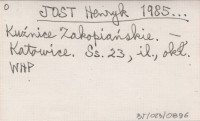 0
JOST Henryk 1985...
Kuźnice Zakopiańskie. —
Katowice. Ss. 23, il., okł.
WHP